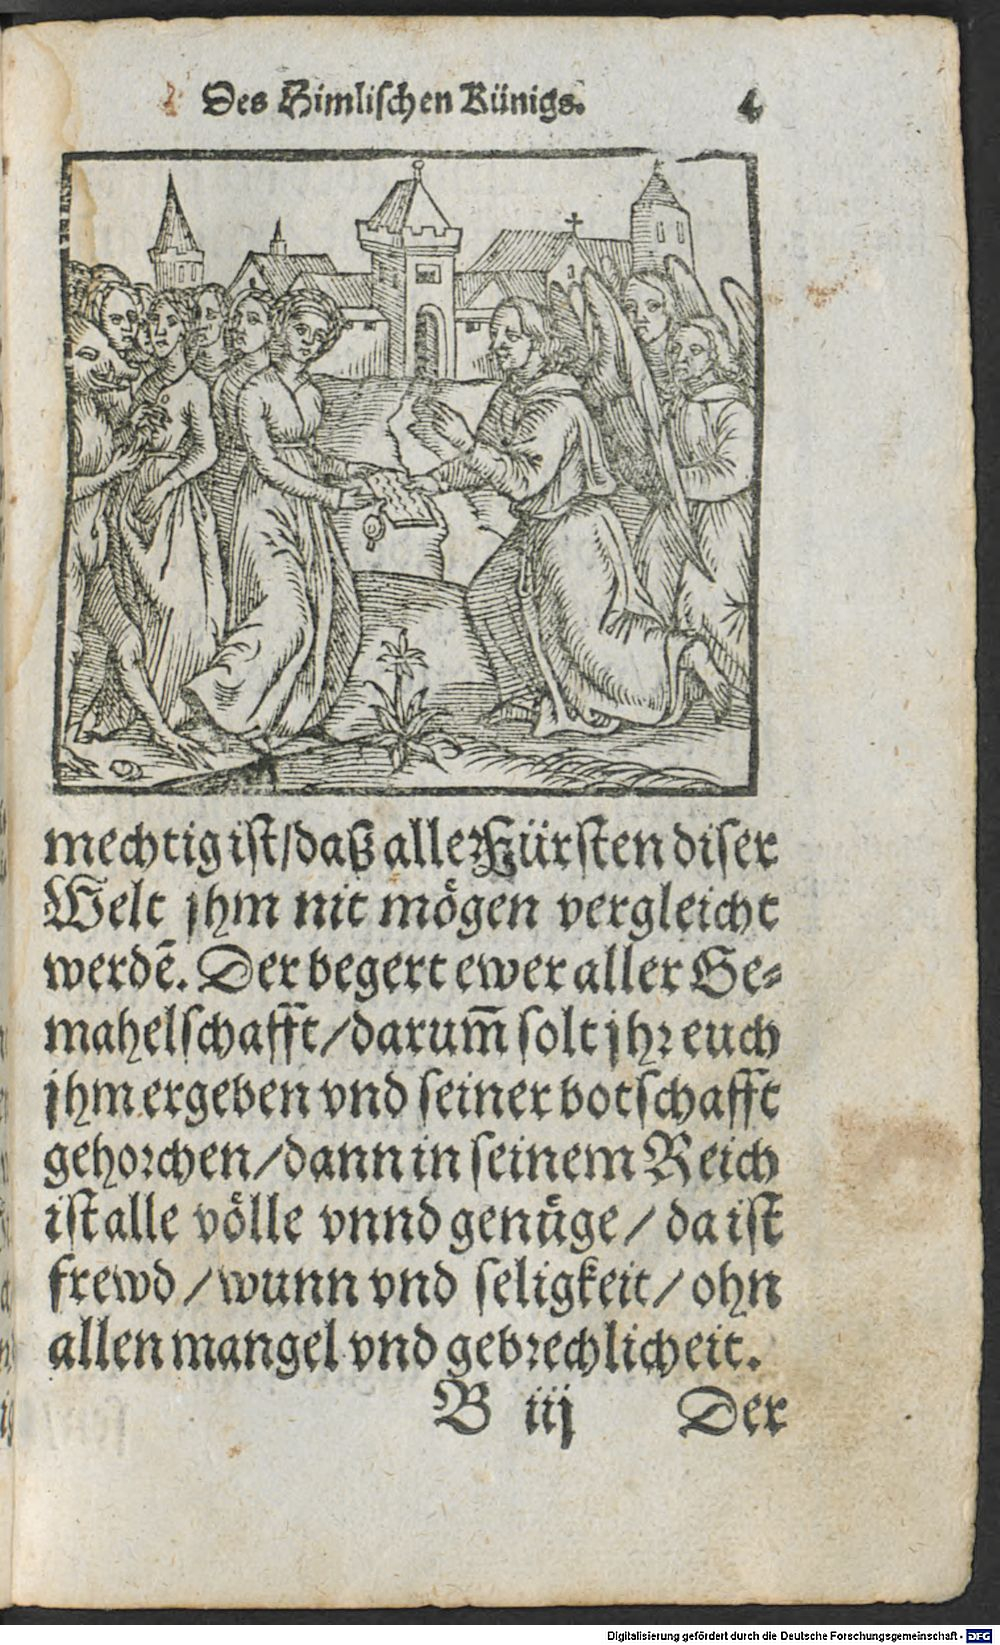 Des Himlischen Künigs. 4
mechtig ist/daß alle Fürsten diser
Welt jhm nit mögen vergleicht
werdē. Der begert ewer aller Ge⸗
mahelschafft/darum̄ solt jhr euch
jhm ergeben vnd seiner botschafft
gehorchen/dann in seinem Reich
ist alle völle vnnd genüge/ da ist
frewd/wunn vnd seligkeit/ohn
allen mangel vnd gebrechlicheit.
B iij Der
Digitalisierung gefördert durch die Deutsche Forschungsgemeinschaft - DFG